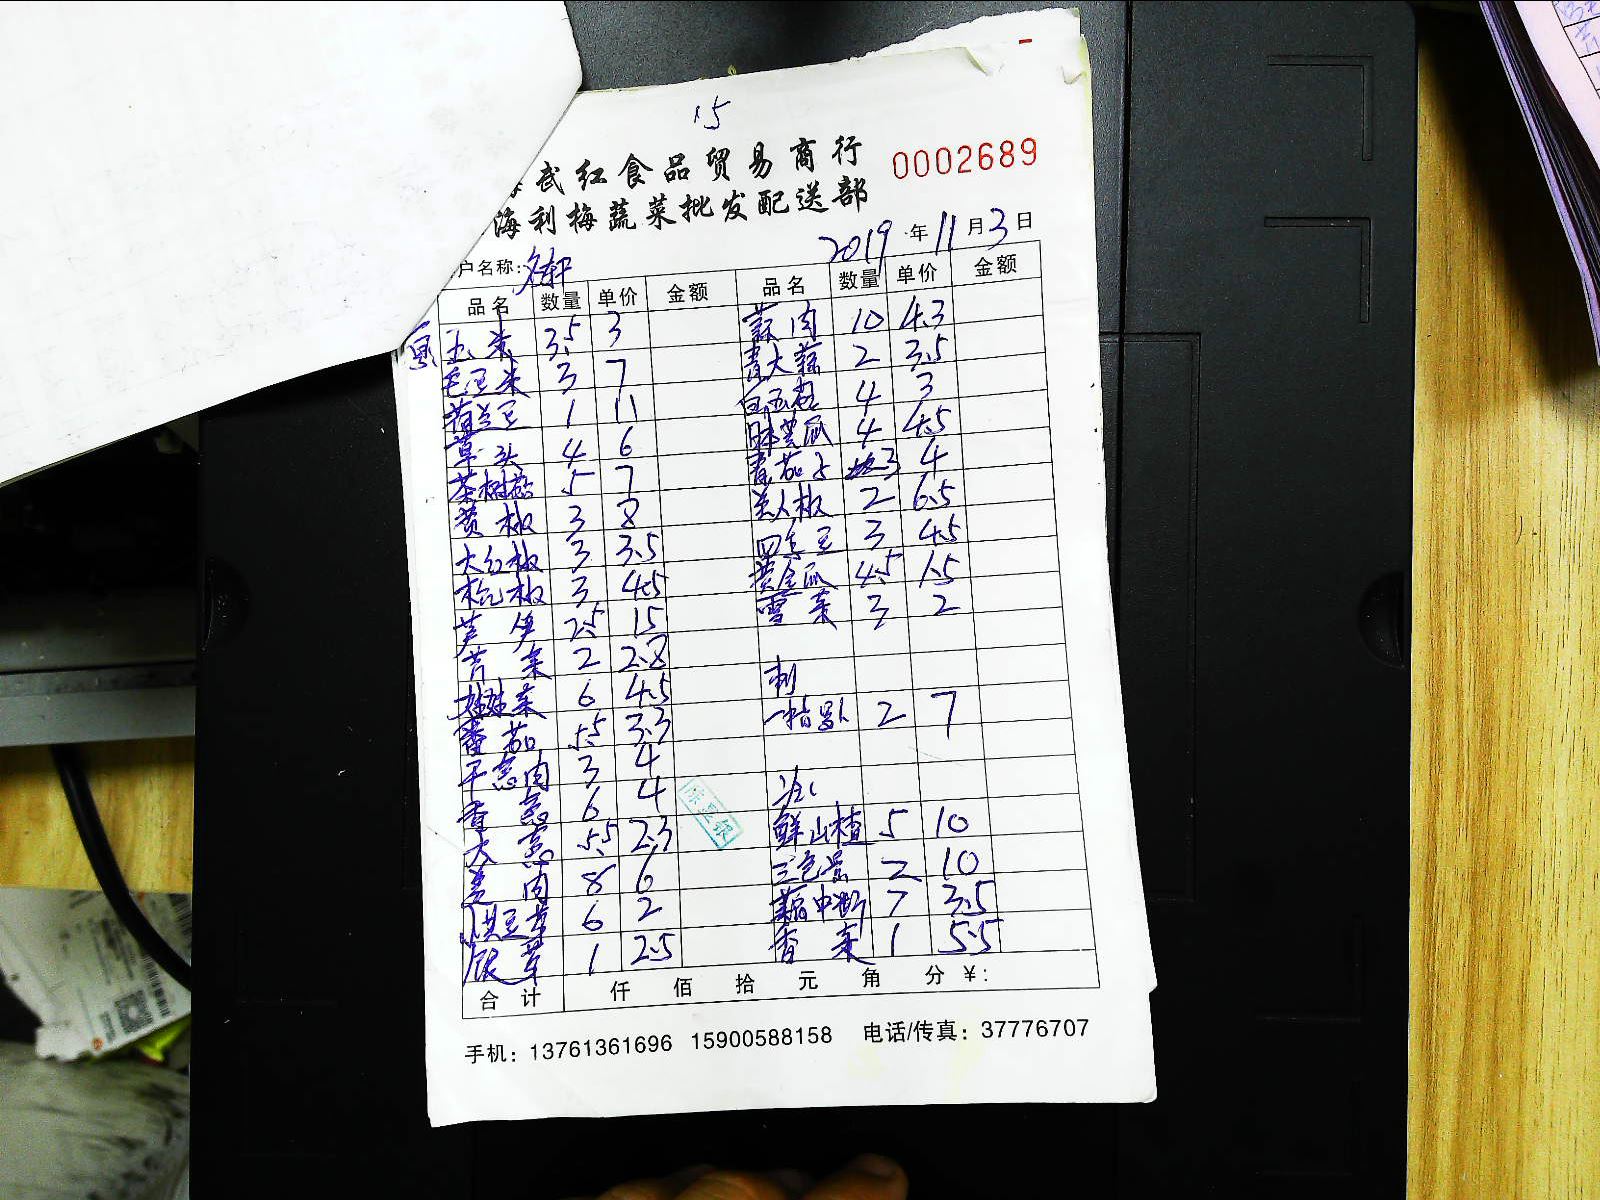 15
武红食品贸易商行
0002689
海利梅蔬菜批发配送部
2019年11月3日
户名称:
品名 数量 单价 金额 品名 数量 单价 金额
玉米 3.5 3 蒜肉 10 4.3
毛豆米 3 7 青大蒜 2 3.5
荷兰豆 1 11 4 3
草头 4 6 日本黄瓜 4 4.5
茶树菇 5 7 青茄子 3 4
黄椒 3 8 美人椒 2 6.5
大红椒 3 3.5 四季豆 3 4.5
杭椒 3 4.5 黄金瓜 4.5 1.5
芦笋 2.5 15 雪菜 3 2
芹菜 2 2.8
娃娃菜 6 4.5 刺
番茄 5.5 3.3 2 7
干葱肉 3 4
香葱 6 4
大葱 5.5 2.3 鲜山楂 5 10
姜肉 8 6 三色堇 2 10
黄豆芽 6 2 藕中断 7 3.5
银芽 1 2.5 香菜 1 5.5
合计 仟 佰 拾 元 角 分 ¥:
手机: 13761361696 15900588158 电话/传真: 37776707